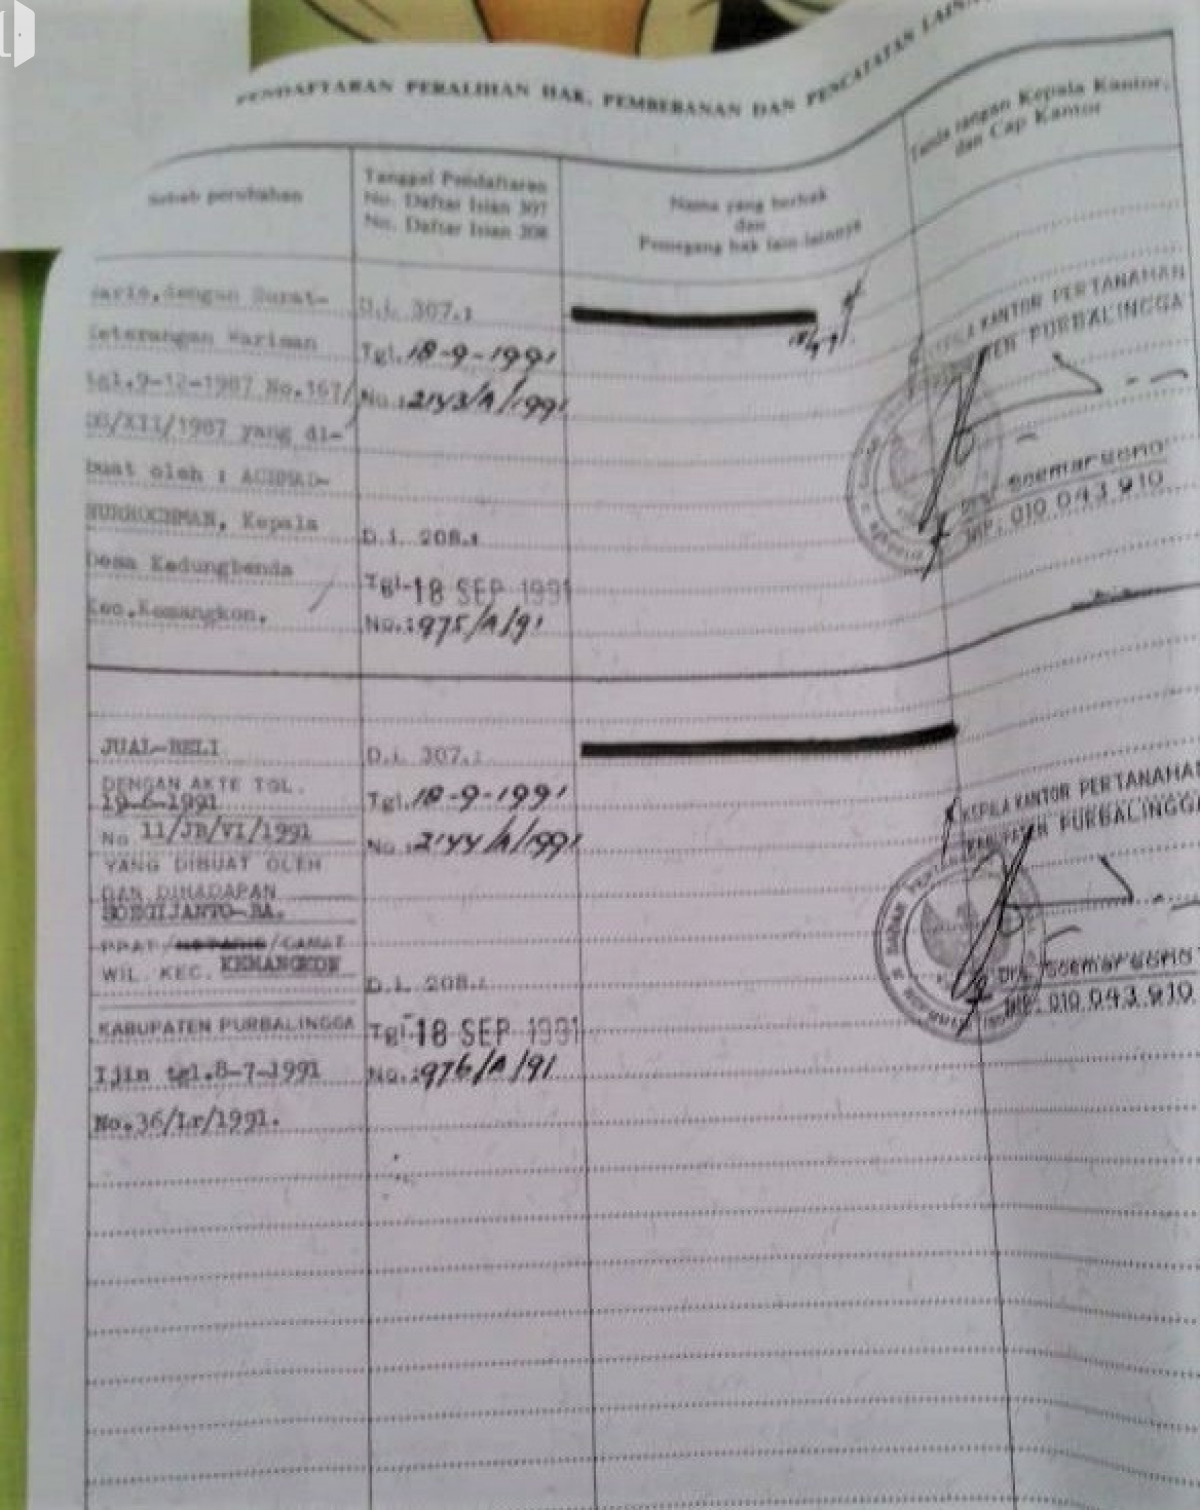 PENDAFTARAN PERALIHAN HAK, PEMBEBANAN DAN PENCATATAN LAINN
Sebab perubahan
Tanggal Pendaftaran
No. Daftar Isian 307
No. Daftar Isian 208
Nama yang berhak
dan
Pemegang hak lain-lainnya
Tanda tangan Kepala Kantor,
dan Cap Kantor
waris,dengan Surat-
Keterangan Warisan
tgl.9-12-1987 No.167/
DS/XII/1987 yang di-
buat oleh : ACHMAD-
NURROCHMAN, Kepala
Desa Kedungbenda
Kec.Kemangkon.
D.i. 307.:
Tgl. 18-9-1991
No.: 2143/A/1991
D.i. 208.:
Tgl. 18 SEP 1991
No.: 975/A/91
KEPALA KANTOR PERTANAHAN
KABUPATEN PURBALINGGA
Drs. Soemarsono
NIP. 010 043 910
JUAL-BELI
DENGAN AKTE TGL.
19-6-1991
No 11/JB/VI/1991
YANG DIBUAT OLEH
DAN DIHADAPAN
SOEGIJANTO-BA.
PPAT/NOTARIS/CAMAT
WIL. KEC. KEMANGKON
KABUPATEN PURBALINGGA
Ijin tgl.8-7-1991
No.36/Lr/1991.
D.i. 307.:
Tgl. 18-9-1991
No.: 2144/A/1991
D.i. 208.:
Tgl. 18 SEP 1991
No.: 976/A/91
KEPALA KANTOR PERTANAHAN
KABUPATEN PURBALINGGA
BADAN PERTANAHAN
Drs. Soemarsono
NIP. 010 043 910